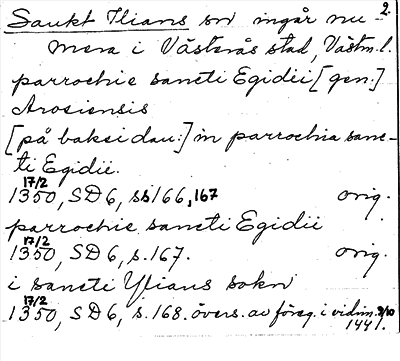 Sankt Ilians sn ingår nu- 2.
mera i Västerås stad, Västm. l.
parrochie sancti Egidii [gen.]
Arosiensis
[på baksidan:] in parrochia sanc-
ti Egidii.
17/2
1350, SD 6, ss 166, 167 orig.
parrochie sancti Egidii
17/2
1350, SD 6, s. 167. orig.
i sancti Ylians sokn
17/2
1350, SD 6, s. 168. övers. av föreg. i vidim. 9/10
1441.